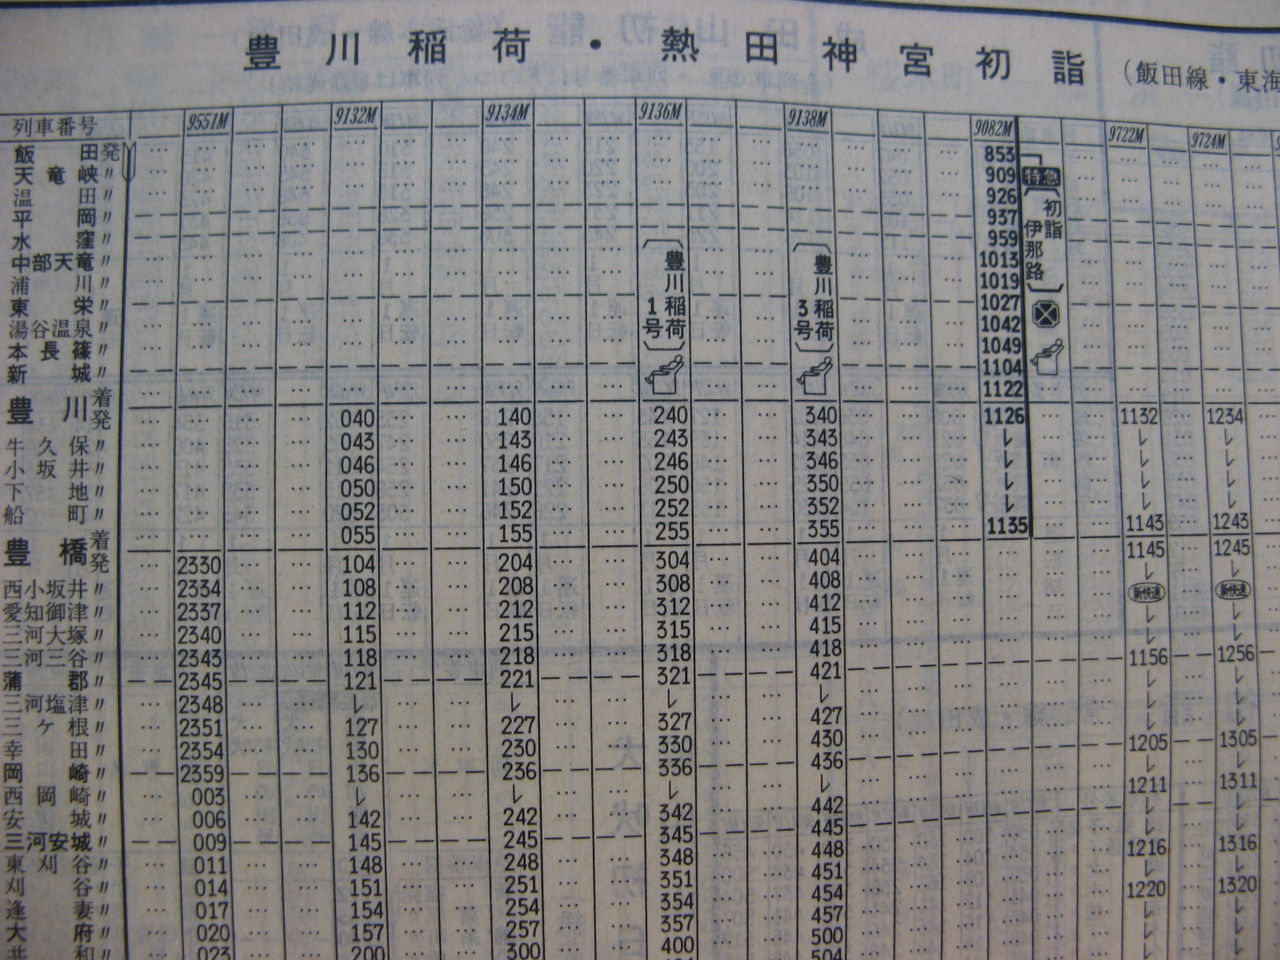 豊川稲荷・熱田神宮初詣 (飯田線・東海
列車番号 9551M 9132M 9134M 9136M 9138M 9082M 9722M 9724M
飯田発 853
天竜峡〃 909 特急
温田〃 926
平岡〃 937
水窪〃 959
中部天竜〃 1013
浦川〃 1019
東栄〃 1027
湯谷温泉〃 1042
本長篠〃 1049
新城〃 1104
豊川稲荷1号
豊川稲荷3号
初詣伊那路
豊川着 1122
発 040 140 240 340 1126 1132 1234
牛久保〃 043 143 243 343 レ レ レ
小坂井〃 046 146 246 346 レ レ レ
下地〃 050 150 250 350 レ レ レ
船町〃 052 152 252 352 レ レ レ
豊橋着 055 155 255 355 1135 1143 1243
発 2330 104 204 304 404 1145 1245
西小坂井〃 2334 108 208 308 408 レ レ
愛知御津〃 2337 112 212 312 412 新快速 新快速
三河大塚〃 2340 115 215 315 415 レ レ
三河三谷〃 2343 118 218 318 418 レ レ
蒲郡〃 2345 121 221 321 421 1156 1256
三河塩津〃 2348 レ レ レ レ レ レ
三ケ根〃 2351 127 227 327 427 レ レ
幸田〃 2354 130 230 330 430 レ レ
岡崎〃 2359 136 236 336 436 1205 1305
西岡崎〃 003 レ レ レ レ レ レ
安城〃 006 142 242 342 442 1211 1311
三河安城〃 009 145 245 345 445 レ レ
東刈谷〃 011 148 248 348 448 レ レ
刈谷〃 014 151 251 351 451 1216 1316
逢妻〃 017 154 254 354 454 レ レ
大府〃 020 157 257 357 457 1220 1320
共和〃 023 200 300 400 500 レ レ
504